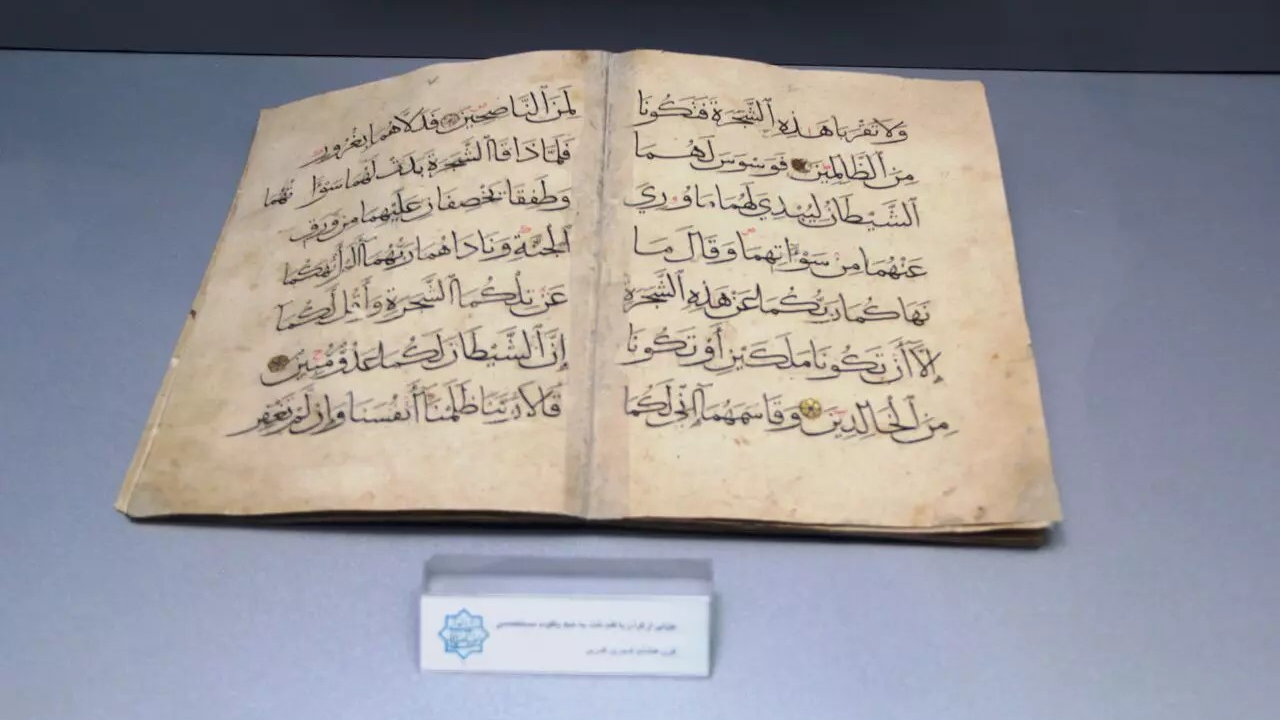 وَلَا تَقْرَبَا هَٰذِهِ ٱلشَّجَرَةَ فَتَكُونَا
مِنَ ٱلظَّالِمِينَ فَوَسْوَسَ لَهُمَا
ٱلشَّيْطَانُ لِيُبْدِيَ لَهُمَا مَا وُورِيَ
عَنْهُمَا مِن سَوْآتِهِمَا وَقَالَ مَا
نَهَاكُمَا رَبُّكُمَا عَنْ هَٰذِهِ ٱلشَّجَرَةِ
إِلَّا أَن تَكُونَا مَلَكَيْنِ أَوْ تَكُونَا
مِنَ ٱلْخَالِدِينَ وَقَاسَمَهُمَا إِنِّي لَكُمَا
لَمِنَ ٱلنَّاصِحِينَ فَدَلَّاهُمَا بِغُرُورٍ
فَلَمَّا ذَاقَا ٱلشَّجَرَةَ بَدَتْ لَهُمَا سَوْآتُهُمَا
وَطَفِقَا يَخْصِفَانِ عَلَيْهِمَا مِن وَرَقِ
ٱلْجَنَّةِ وَنَادَاهُمَا رَبُّهُمَا أَلَمْ أَنْهَكُمَا
عَن تِلْكُمَا ٱلشَّجَرَةِ وَأَقُل لَّكُمَا
إِنَّ ٱلشَّيْطَانَ لَكُمَا عَدُوٌّ مُّبِينٌ
قَالَا رَبَّنَا ظَلَمْنَا أَنفُسَنَا وَإِن لَّمْ تَغْفِرْ
از قرآن با قلم ثلث به خط یاقوت مستعصمی
قرن هجری قمری